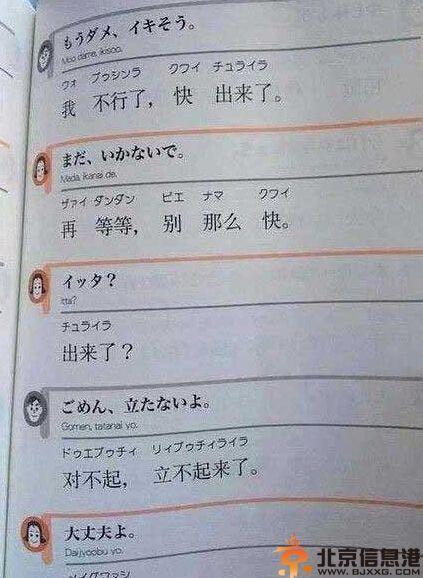 もうダメ、イキそう。
Moo dame, ikisoo.
ウォ ブゥシンラ クワイ チュライラ
我 不行了, 快 出来了。
まだ、いかないで。
Mada, ikanai de.
ザァイ ダンダン ビエ ナマ クワイ
再 等等, 别 那么 快。
イッタ？
Itta?
チュライラ
出来了？
ごめん、立たないよ。
Gomen, tatanai yo.
ドゥエブゥチィ リィブゥチィライラ
对不起, 立不起来了。
大丈夫よ。
Daijyoobu yo.
北京信息港
WWW.BJXXG.COM